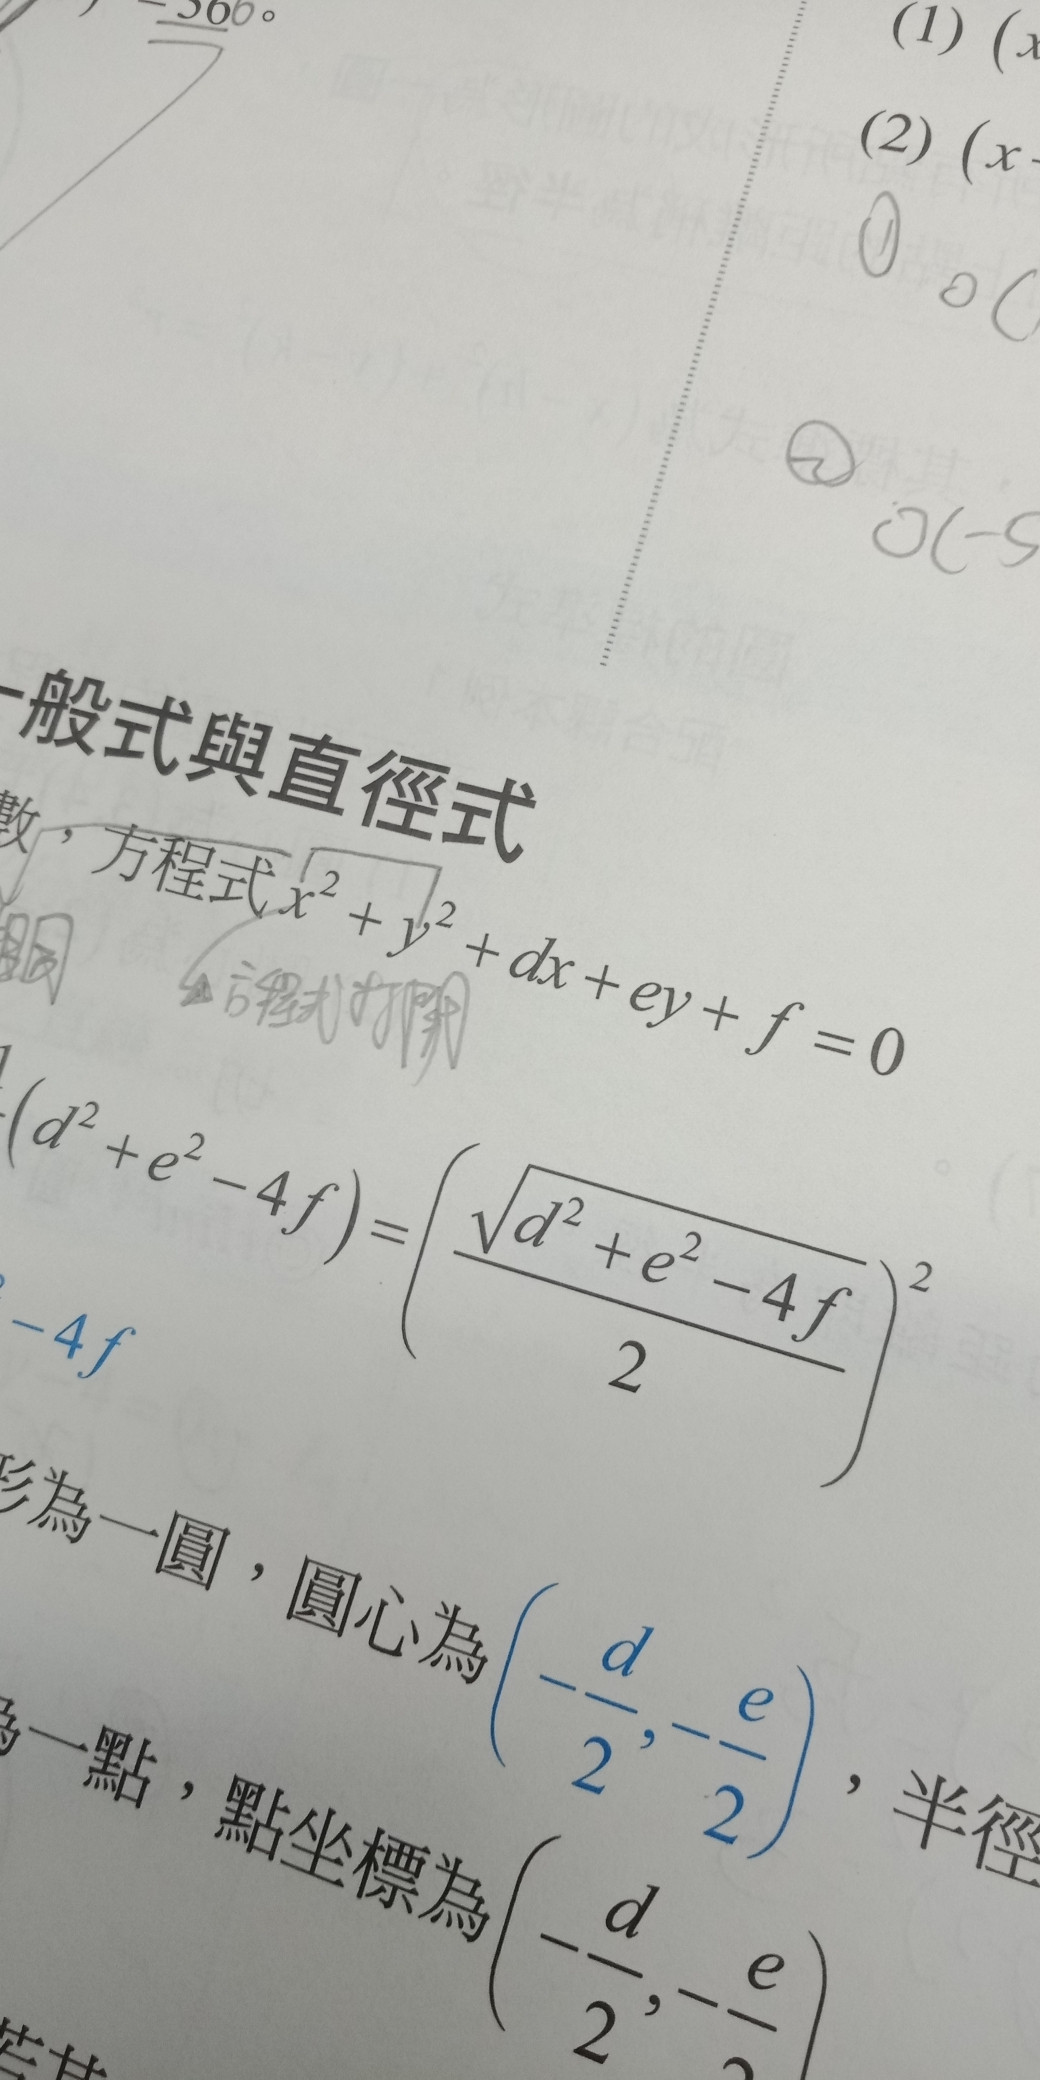 (1) (x
(2) (x-
一般式與直徑式
數，方程式 x² + y² + dx + ey + f = 0
方程式打開
(d² + e² - 4f) = (√(d² + e² - 4f) / 2)²
- 4f
形為一圓，圓心為 (-d/2, -e/2)，半徑
為一點，點坐標為 (-d/2, -e/2)
若其